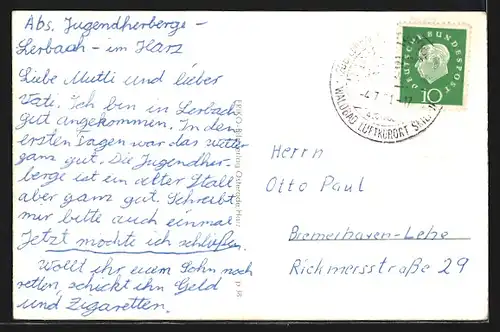 Abs. Jugendherberge -
Lerbach - im Harz
Liebe Mutti und lieber
Vati. Ich bin in Lerbach
gut angekommen. In den
ersten Tagen war das Wetter
ganz gut. Die Jugendher-
berge ist ein alter Stall
aber ganz gut. Schreibt
mir bitte auch einmal
Jetzt möchte ich schließen.
Wollt ihr euern Sohn noch
retten, schickt ihm Geld
und Zigaretten.
DEUTSCHE BUNDESPOST
10
-4.7.
WALDBAD LUFTKURORT
Herrn
Otto Paul
Bremerhaven-Lehe
Rickmersstraße 29
Osterode/Harz